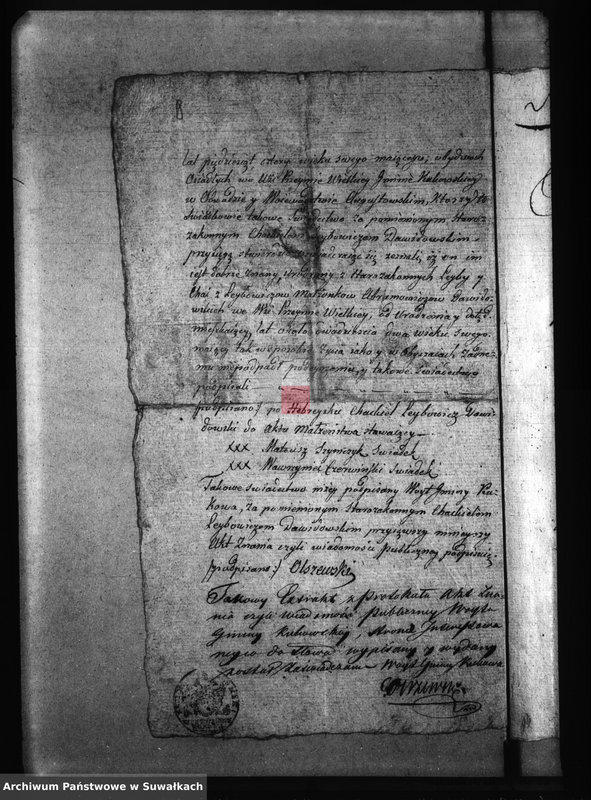 lat pięćdziesiąt cztery wieku swego maiącego, obydwóch
Osiadłych we Wsi Przeymie Wielkiey Gminie Kukowskiey
w Obwodzie y Woiewodztwie Augustowskim, Którzy to
Swiadkowie takowe Swiadectwo Za pomienionym Staro¬
zakonnym Chackielem Leybowiczem Dawidowskim
iest dobrze Znany, Urodzony z Starozakonnych Leyby y
Chai z Leybowiczów Małżonków Abramowiczów Dawido¬
wskich we Wsi Przeymie Wielkiey, Od Urodzenia y dotąd
mieszkaiący, lat około dwadzieścia dwa wieku swego
maiący tak w sposobie życia iako y w Obyczaiach żadne¬
mu niepodpadł podeyrzeniu, y takowe Swiadectwo
podpisali
/podpisano:/ po Hebraysku Chackiel Leybowicz Dawi¬
dowski do Aktu Małżeństwa stawaiący
XXX Mateusz Szymczyk Swiadek
XXX Wawrzyniec Czerwiński Swiadek
Takowe Swiadectwo niżey podpisany Woyt Gminy Ku¬
kowa, za pomienionym Starozakonnym Chackielem
Leybowiczem Dawidowskim przyiąwszy ninieyszy
Akt Znania czyli wiadomości publiczney podpisuię
/podpisano:/ Olszewski
Takowy Extrakt z Protokułu Akt Zna¬
nia czyli wiadomości Publiczney Woyta
Gminy Kukowskiey, Stronie Interessowa
ney co do Słowa wypisany y wydany
został Zaświadczam Woyt Gminy Kukowa
Olszewski
Archiwum Państwowe w Suwałkach